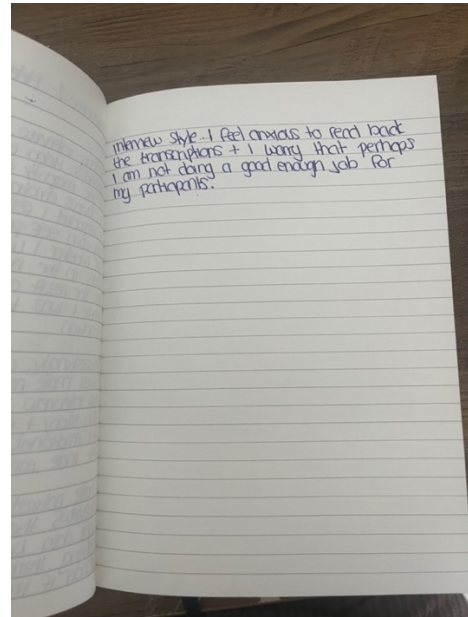 interview style. I feel anxious to read back
the transcriptions + I worry that perhaps
I am not doing a good enough job for
my participants.